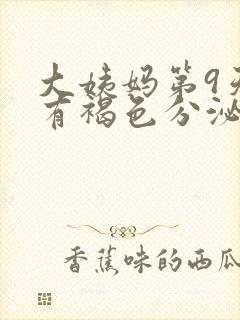 大姨妈第9天
有褐色分泌
香蕉味的西瓜